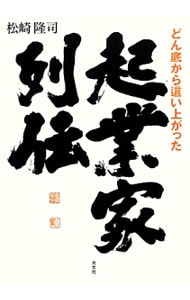 どん底から這い上がった
起業家
列伝
松崎隆司
光文社